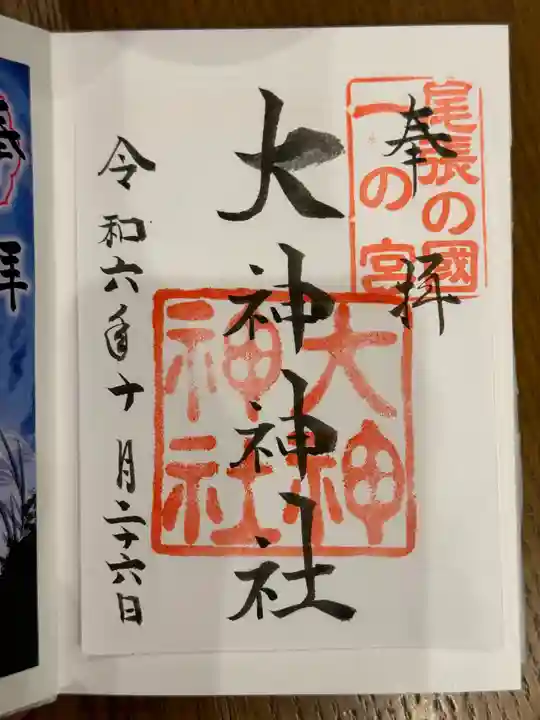 尾張の國
一の宮
奉拝
大神神社
大神
神社
令和六年十月二十六日
奉
拝